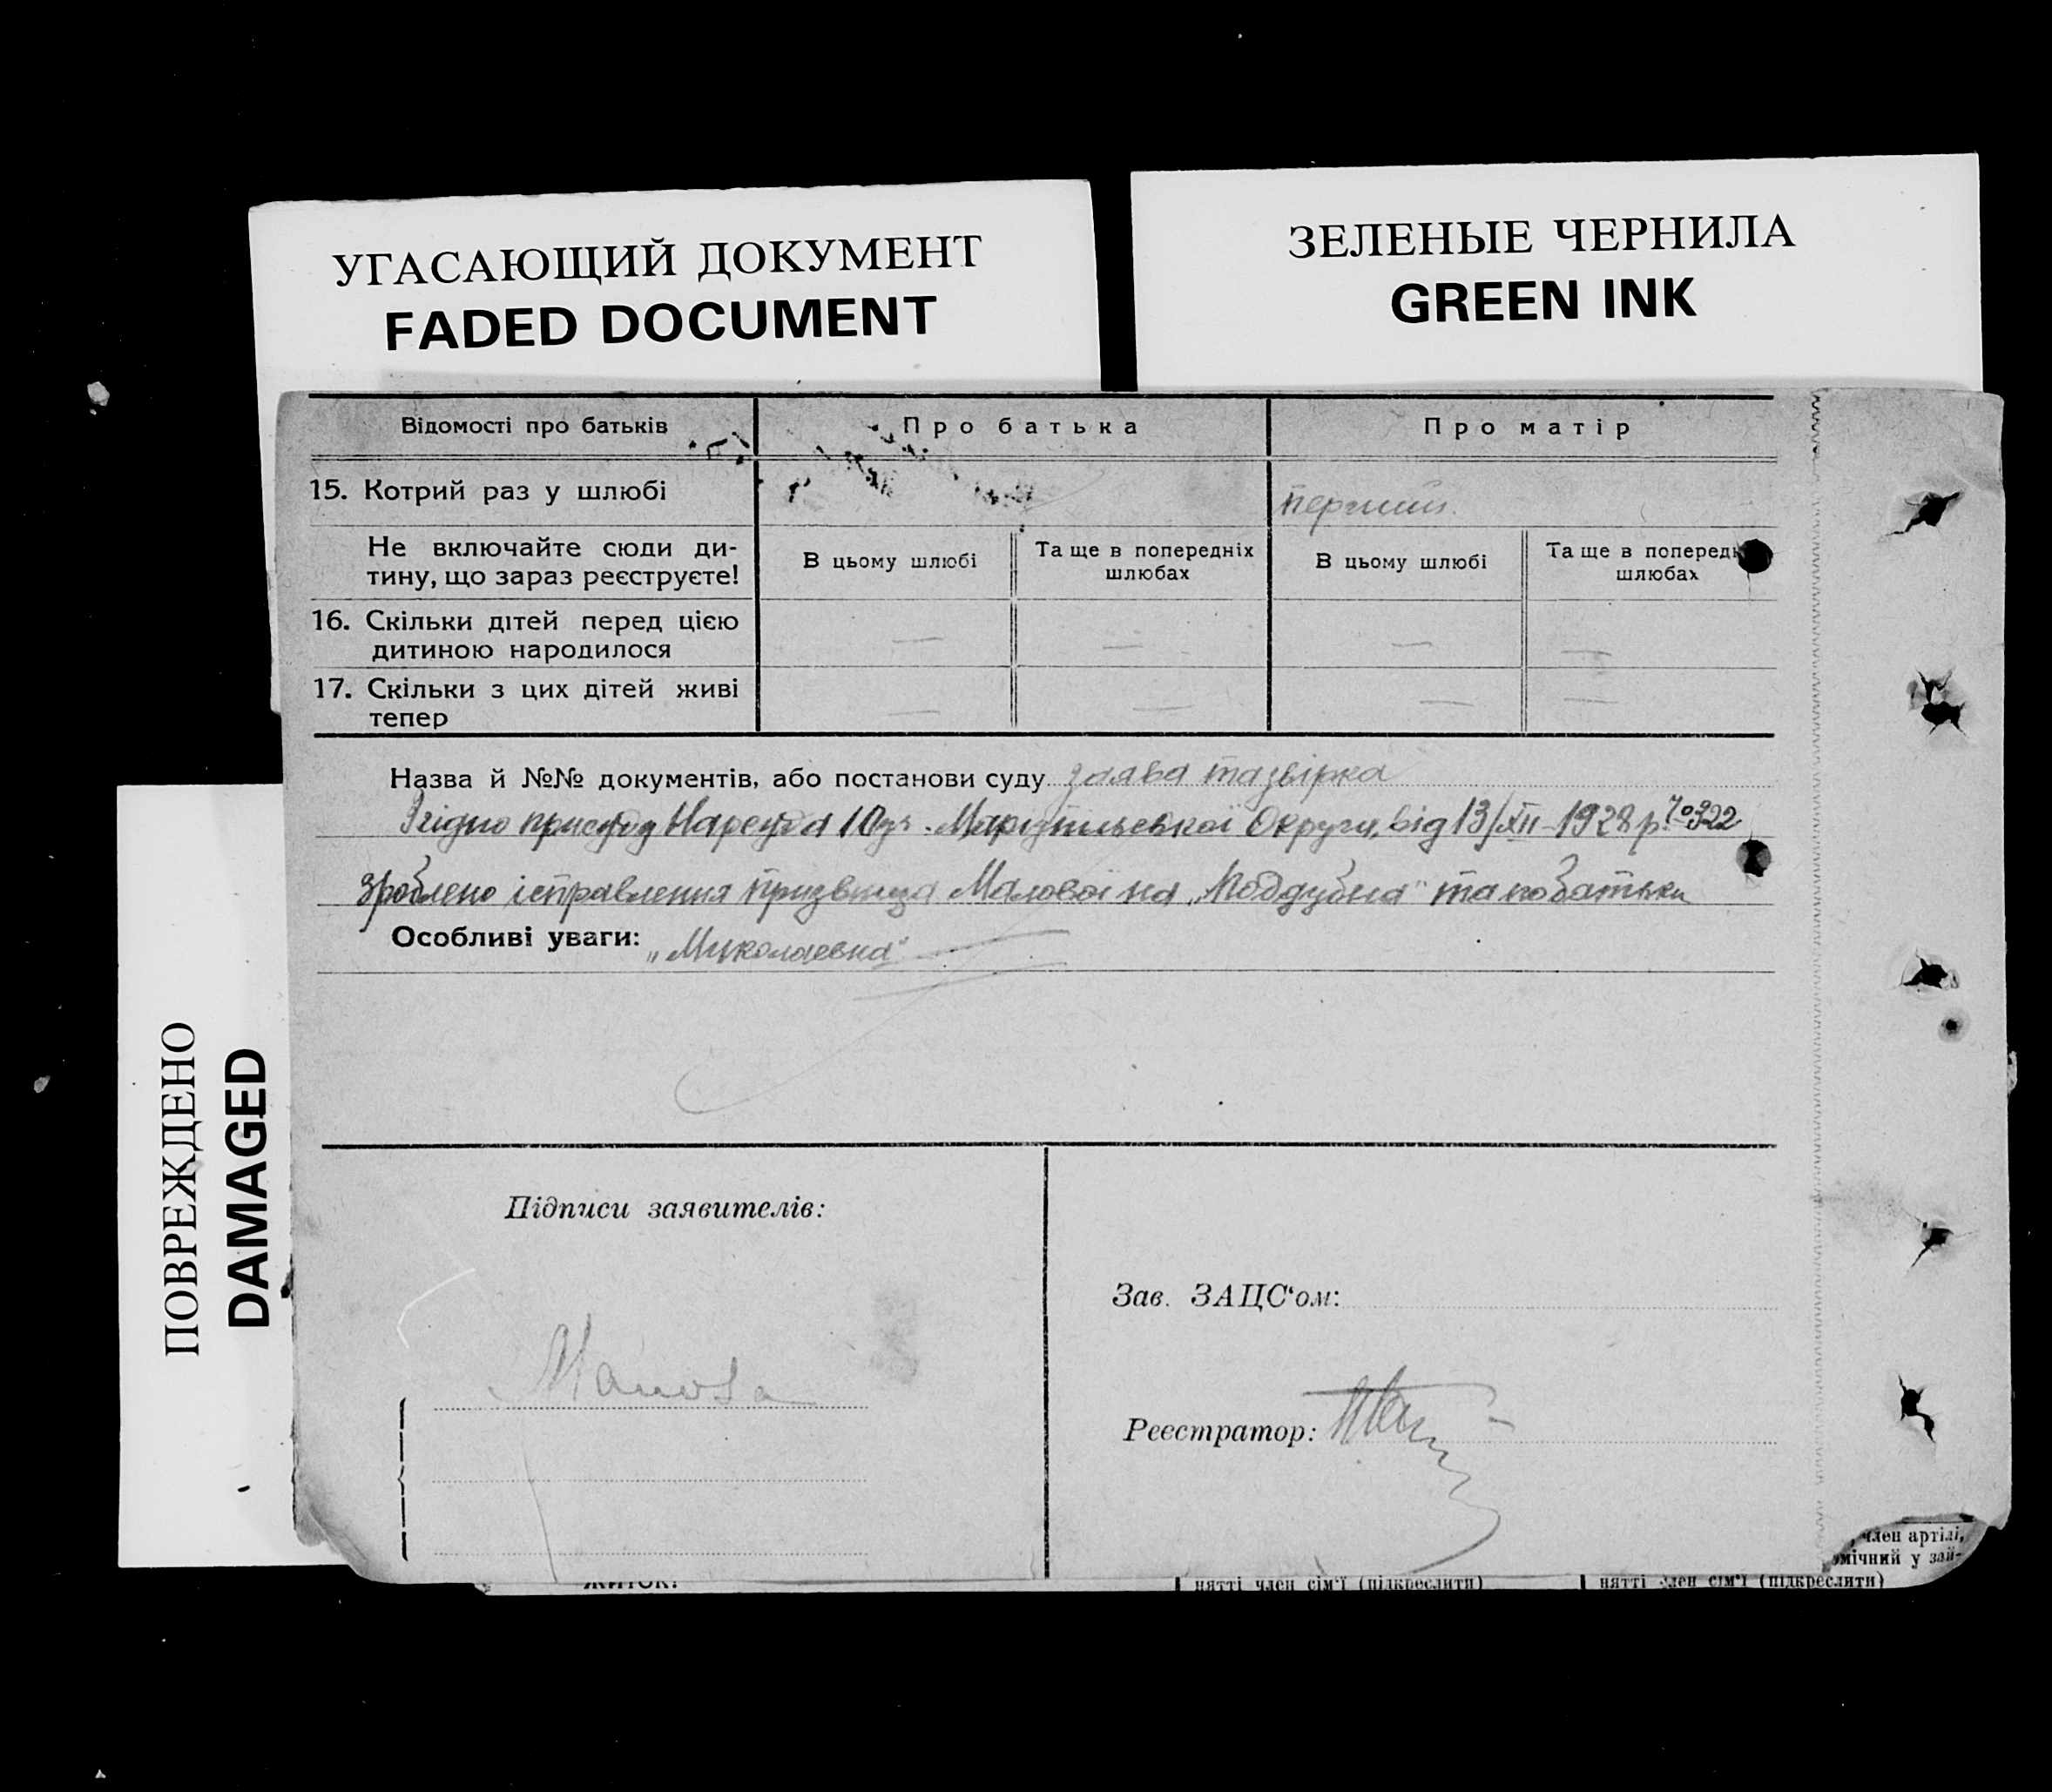 УГАСАЮЩИЙ ДОКУМЕНТ
FADED DOCUMENT
ЗЕЛЕНЫЕ ЧЕРНИЛА
GREEN INK
ПОВРЕЖДЕНО
DAMAGED
Відомості про батьків
Про батька
Про матір
15. Котрий раз у шлюбі
перший.
Не включайте сюди ди-
тину, що зараз реєструєте!
В цьому шлюбі
Та ще в попередніх
шлюбах
В цьому шлюбі
Та ще в поперед
шлюбах
16. Скільки дітей перед цією
дитиною народилося
— — — —
17. Скільки з цих дітей живі
тепер
— — — —
Назва й №№ документів, або постанови суду заява та звірка
Згідно присуду Нарсуда 10 Маріупільської Округи, від 13/XII-1928 р. № 322
зроблено ісправлення призвища Малової на „Поддубна" та побатьки
Особливі уваги: „Миколаевна"
Підписи заявителів:
Малова
Зав. ЗАЦС'ом:
Реєстратор:
член артілі,
мічний у зай-
житок:
нятті член сім'ї (підкреслити)
нятті член сім'ї (підкреслити)